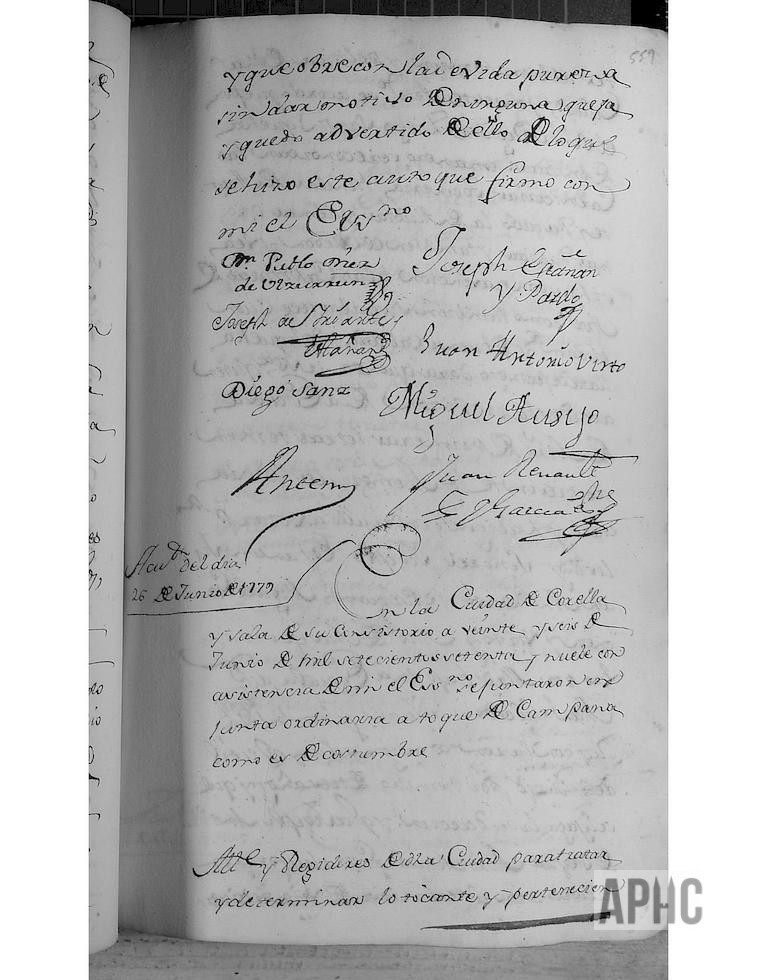 559
y que obre con la devida pureza
sin dar motivo De ninguna queja
y quedo advertido De ello De lo que
se hizo este auto que firmo con
mi el Essno
Dn. Pablo
de
Joseph
y Pardo
Joseph de
Juan Antonio Virto
Diego Sanz
Miguel Ausejo
Antemi
Juan Renault
y Garcia
Acudo del dia
26 De Junio De 1779
En la Ciudad De Corella
y sala De su Consistorio a veinte y seis De
Junio De mil setecientos setenta y nueve con
asistencia De mi el Essno se juntaron en
Junta ordinaria a toque De Campana
como es De costumbre
Alle y Regidores De dha Ciudad para tratar
y determinar lo tocante y pertenecien
APHC